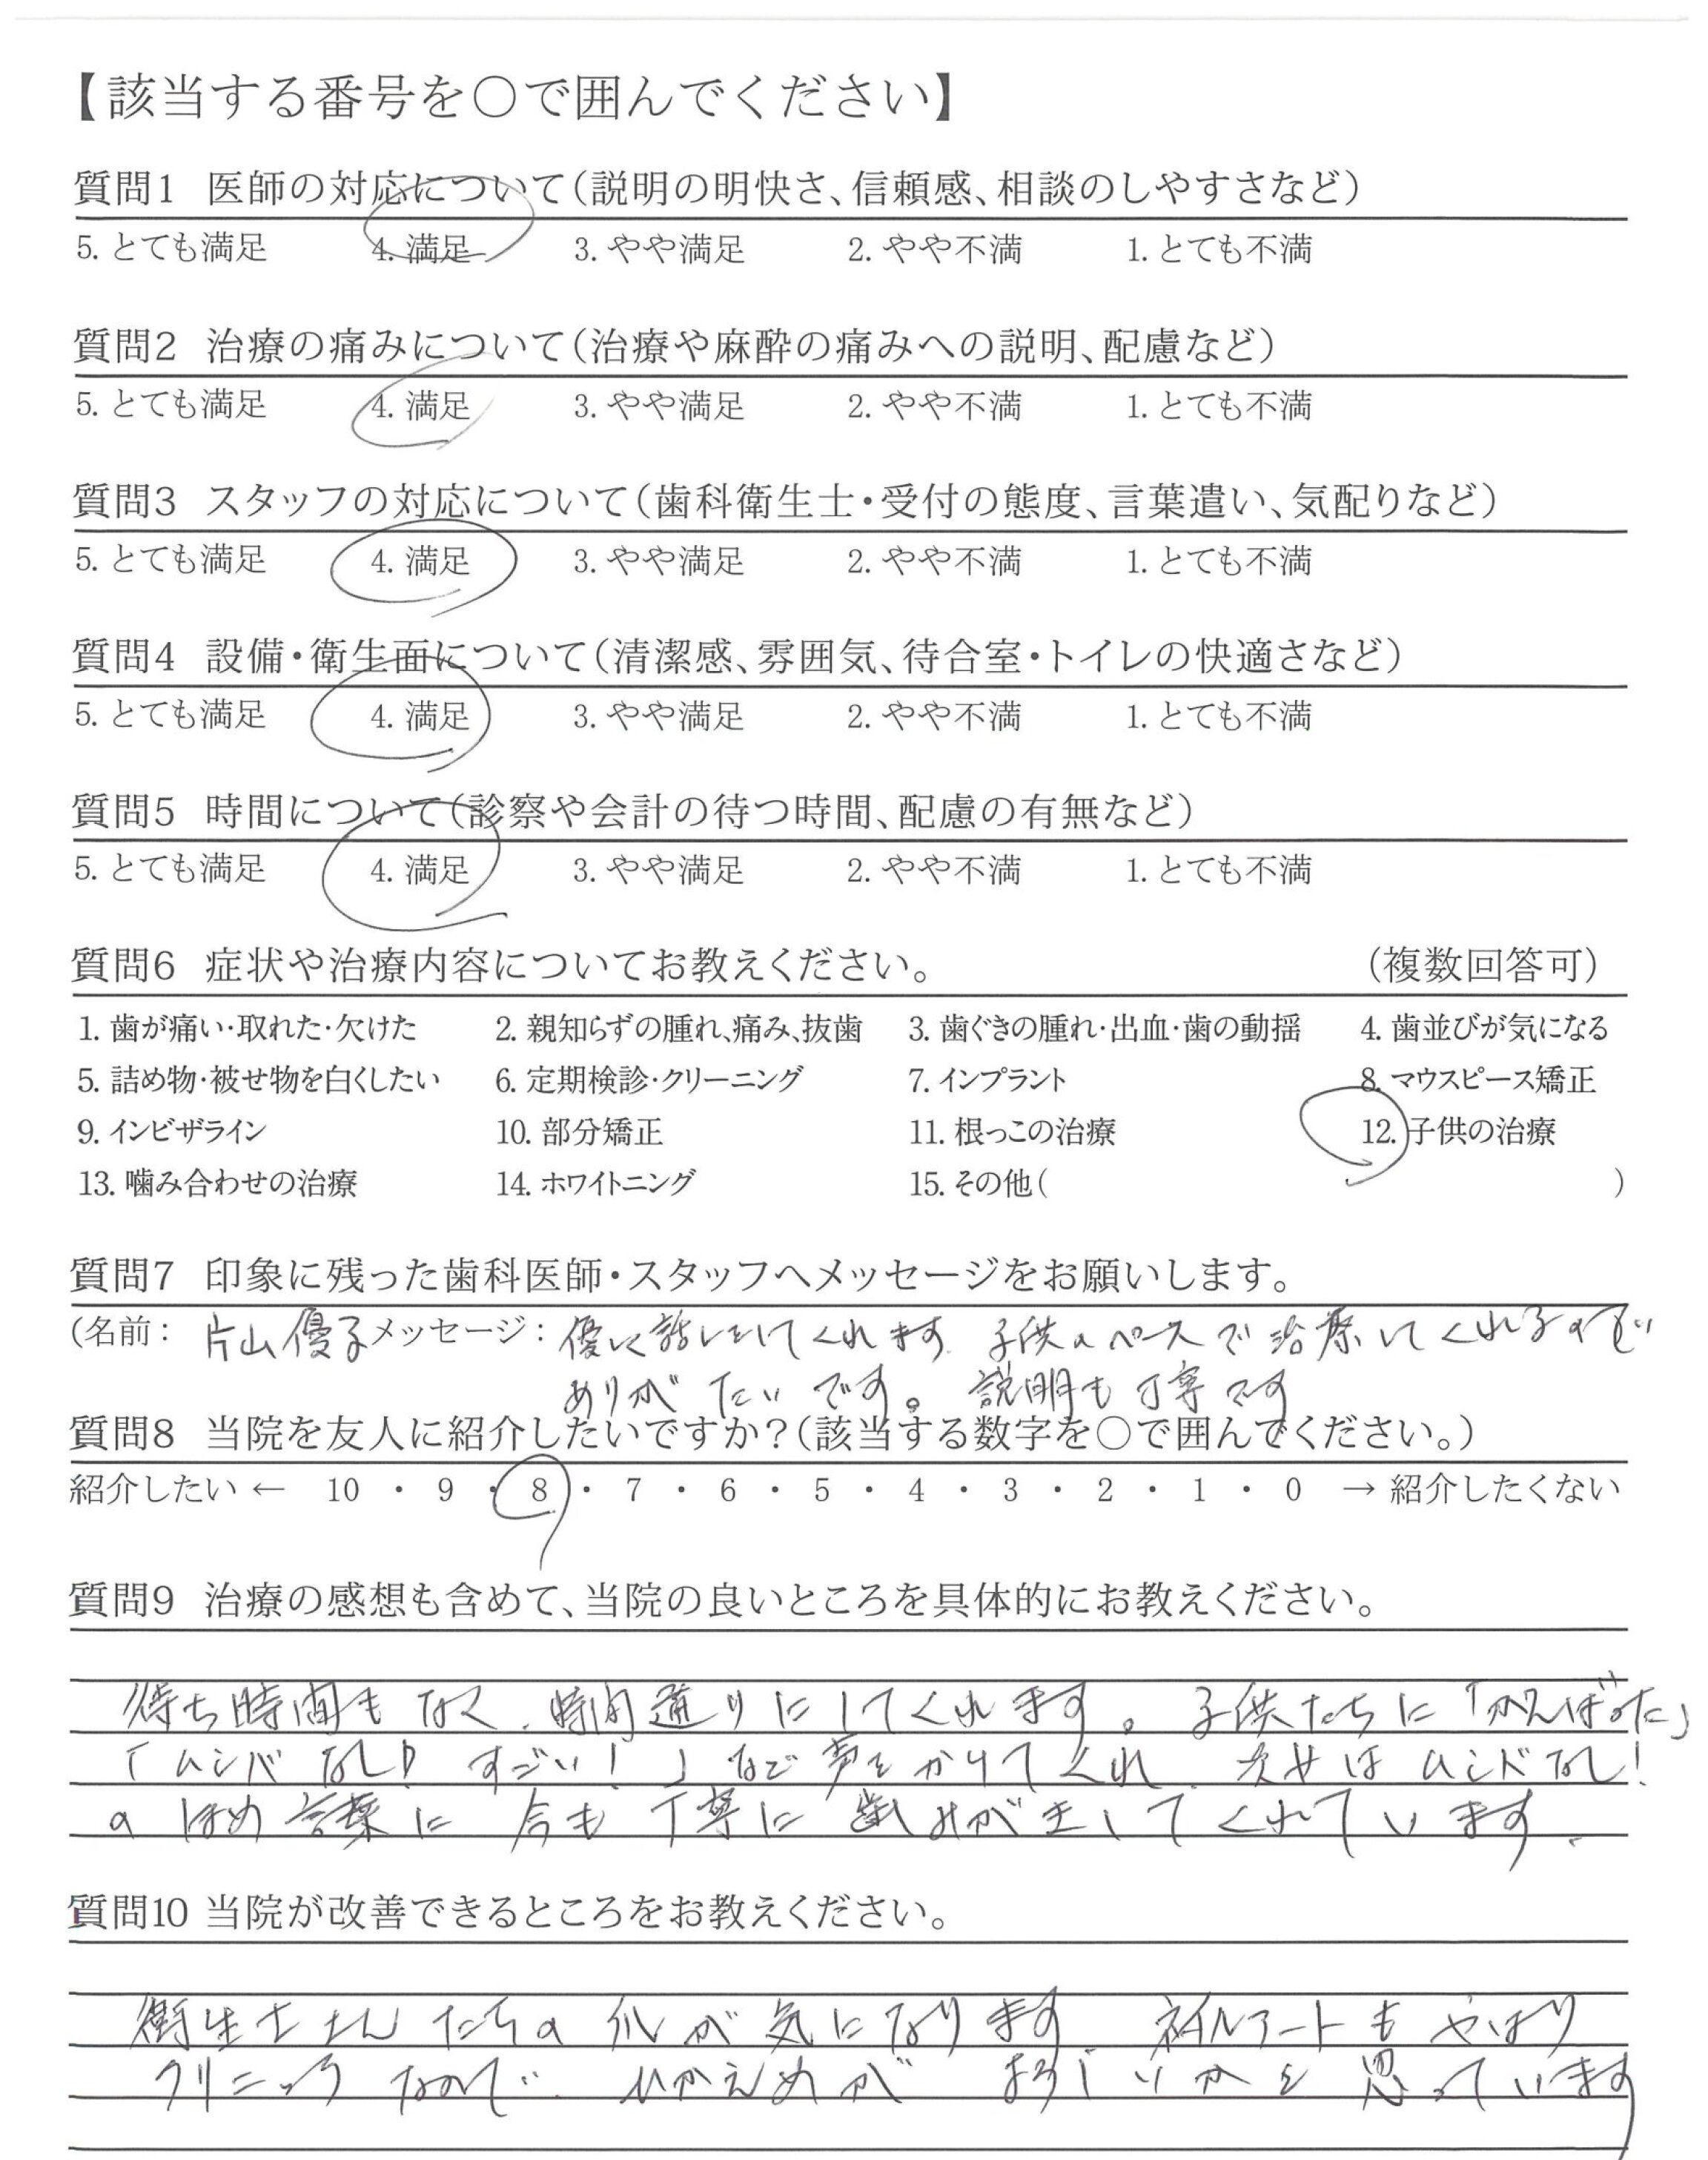 【該当する番号を○で囲んでください】
質問1 医師の対応について(説明の明快さ、信頼感、相談のしやすさなど)
5. とても満足 4. 満足 3. やや満足 2. やや不満 1. とても不満
質問2 治療の痛みについて(治療や麻酔の痛みへの説明、配慮など)
5. とても満足 4. 満足 3. やや満足 2. やや不満 1. とても不満
質問3 スタッフの対応について(歯科衛生士・受付の態度、言葉遣い、気配りなど)
5. とても満足 4. 満足 3. やや満足 2. やや不満 1. とても不満
質問4 設備・衛生面について(清潔感、雰囲気、待合室・トイレの快適さなど)
5. とても満足 4. 満足 3. やや満足 2. やや不満 1. とても不満
質問5 時間について(診察や会計の待つ時間、配慮の有無など)
5. とても満足 4. 満足 3. やや満足 2. やや不満 1. とても不満
質問6 症状や治療内容についてお教えください。 (複数回答可)
1. 歯が痛い・取れた・欠けた 2. 親知らずの腫れ、痛み、抜歯 3. 歯ぐきの腫れ・出血・歯の動揺 4. 歯並びが気になる
5. 詰め物・被せ物を白くしたい 6. 定期検診・クリーニング 7. インプラント 8. マウスピース矯正
9. インビザライン 10. 部分矯正 11. 根っこの治療 12. 子供の治療
13. 噛み合わせの治療 14. ホワイトニング 15. その他( )
質問7 印象に残った歯科医師・スタッフへメッセージをお願いします。
(名前: 片山優子 メッセージ: 優しく話しをしてくれます 子供のペースで治療してくれるので
ありがたいです。説明も丁寧です
質問8 当院を友人に紹介したいですか?(該当する数字を○で囲んでください。)
紹介したい ← 10 ・ 9 ・ 8 ・ 7 ・ 6 ・ 5 ・ 4 ・ 3 ・ 2 ・ 1 ・ 0 → 紹介したくない
質問9 治療の感想も含めて、当院の良いところを具体的にお教えください。
待ち時間もなく、時間通りにしてくれます。子供たちに「がんばった」
「ムシバなし! すごい!」など声をかけてくれ、次女はムシバなし!
のほめ言葉に今も丁寧に歯みがきをしてくれています。
質問10 当院が改善できるところをお教えください。
衛生士さんたちの爪が気になります ネイルアートもやはり
クリニックなので… ひかえめがよろしいかと思っています